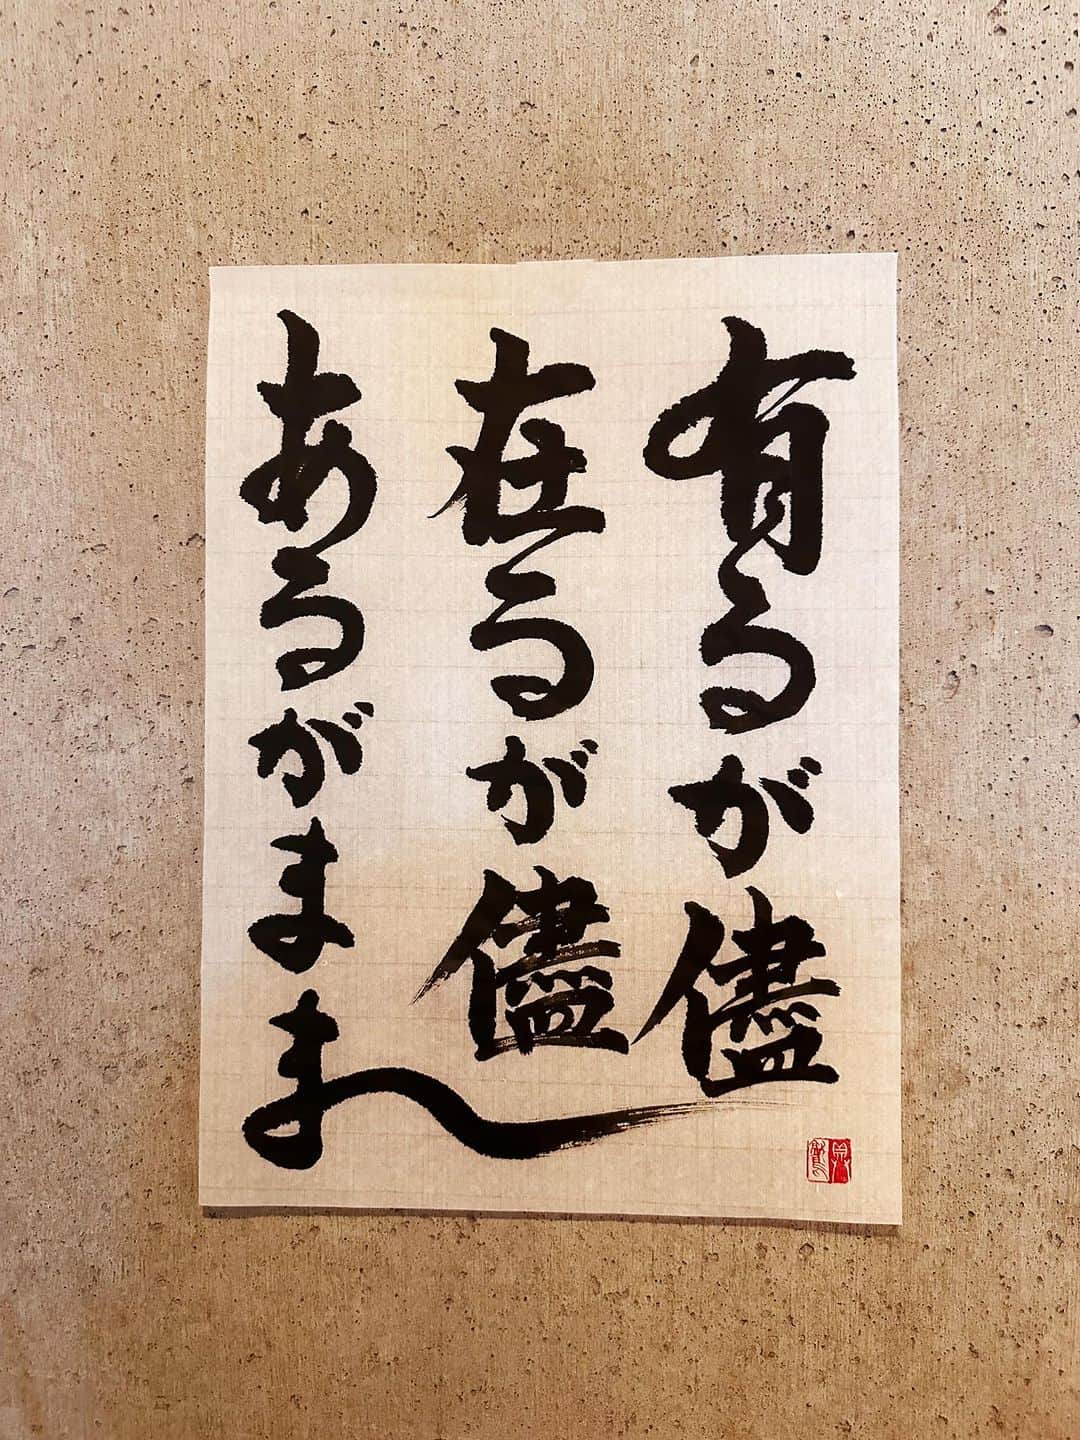 有るが儘
在るが儘
あるがまま